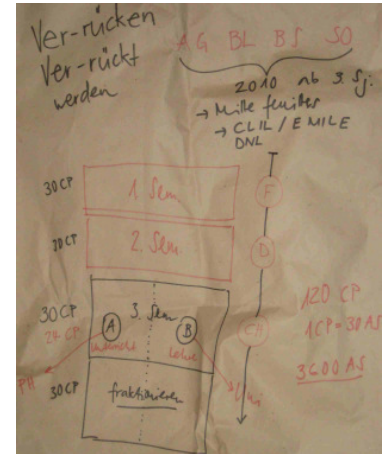 Ver-rücken
Ver-rückt
werden
AG BL BS SO
2010 ab 3. Sj.
→ Mille feuilles
→ CLIL / EMILE
DNL
30 CP
1. Sem.
F
30 CP
2. Sem.
D
30 CP
24 CP
3. Sem
A
B
CH
PH
Uni
30 CP
fraktionieren
120 CP
1CP = 30 AS
3600 AS